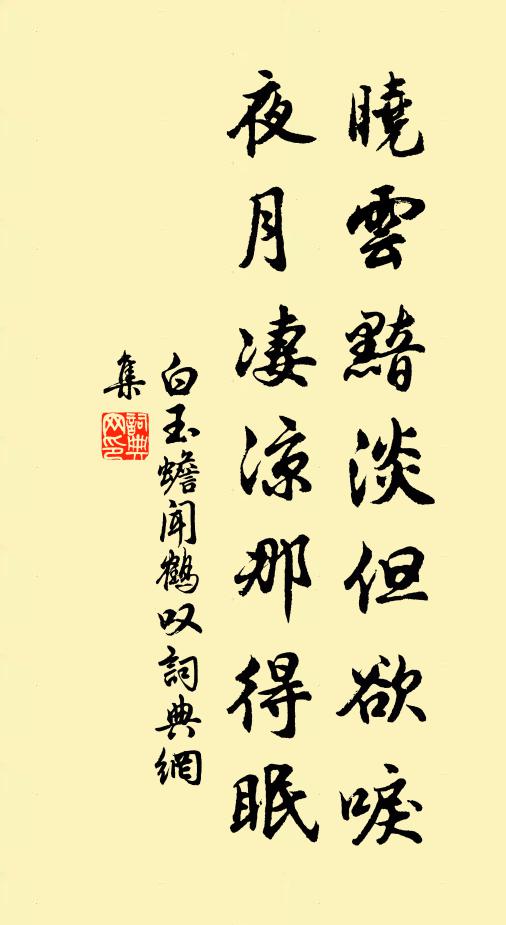 曉雲黯淡但欲唳
夜月凄涼那得眠
白玉蟾闻鶴叹詞典網
集
詞典网印